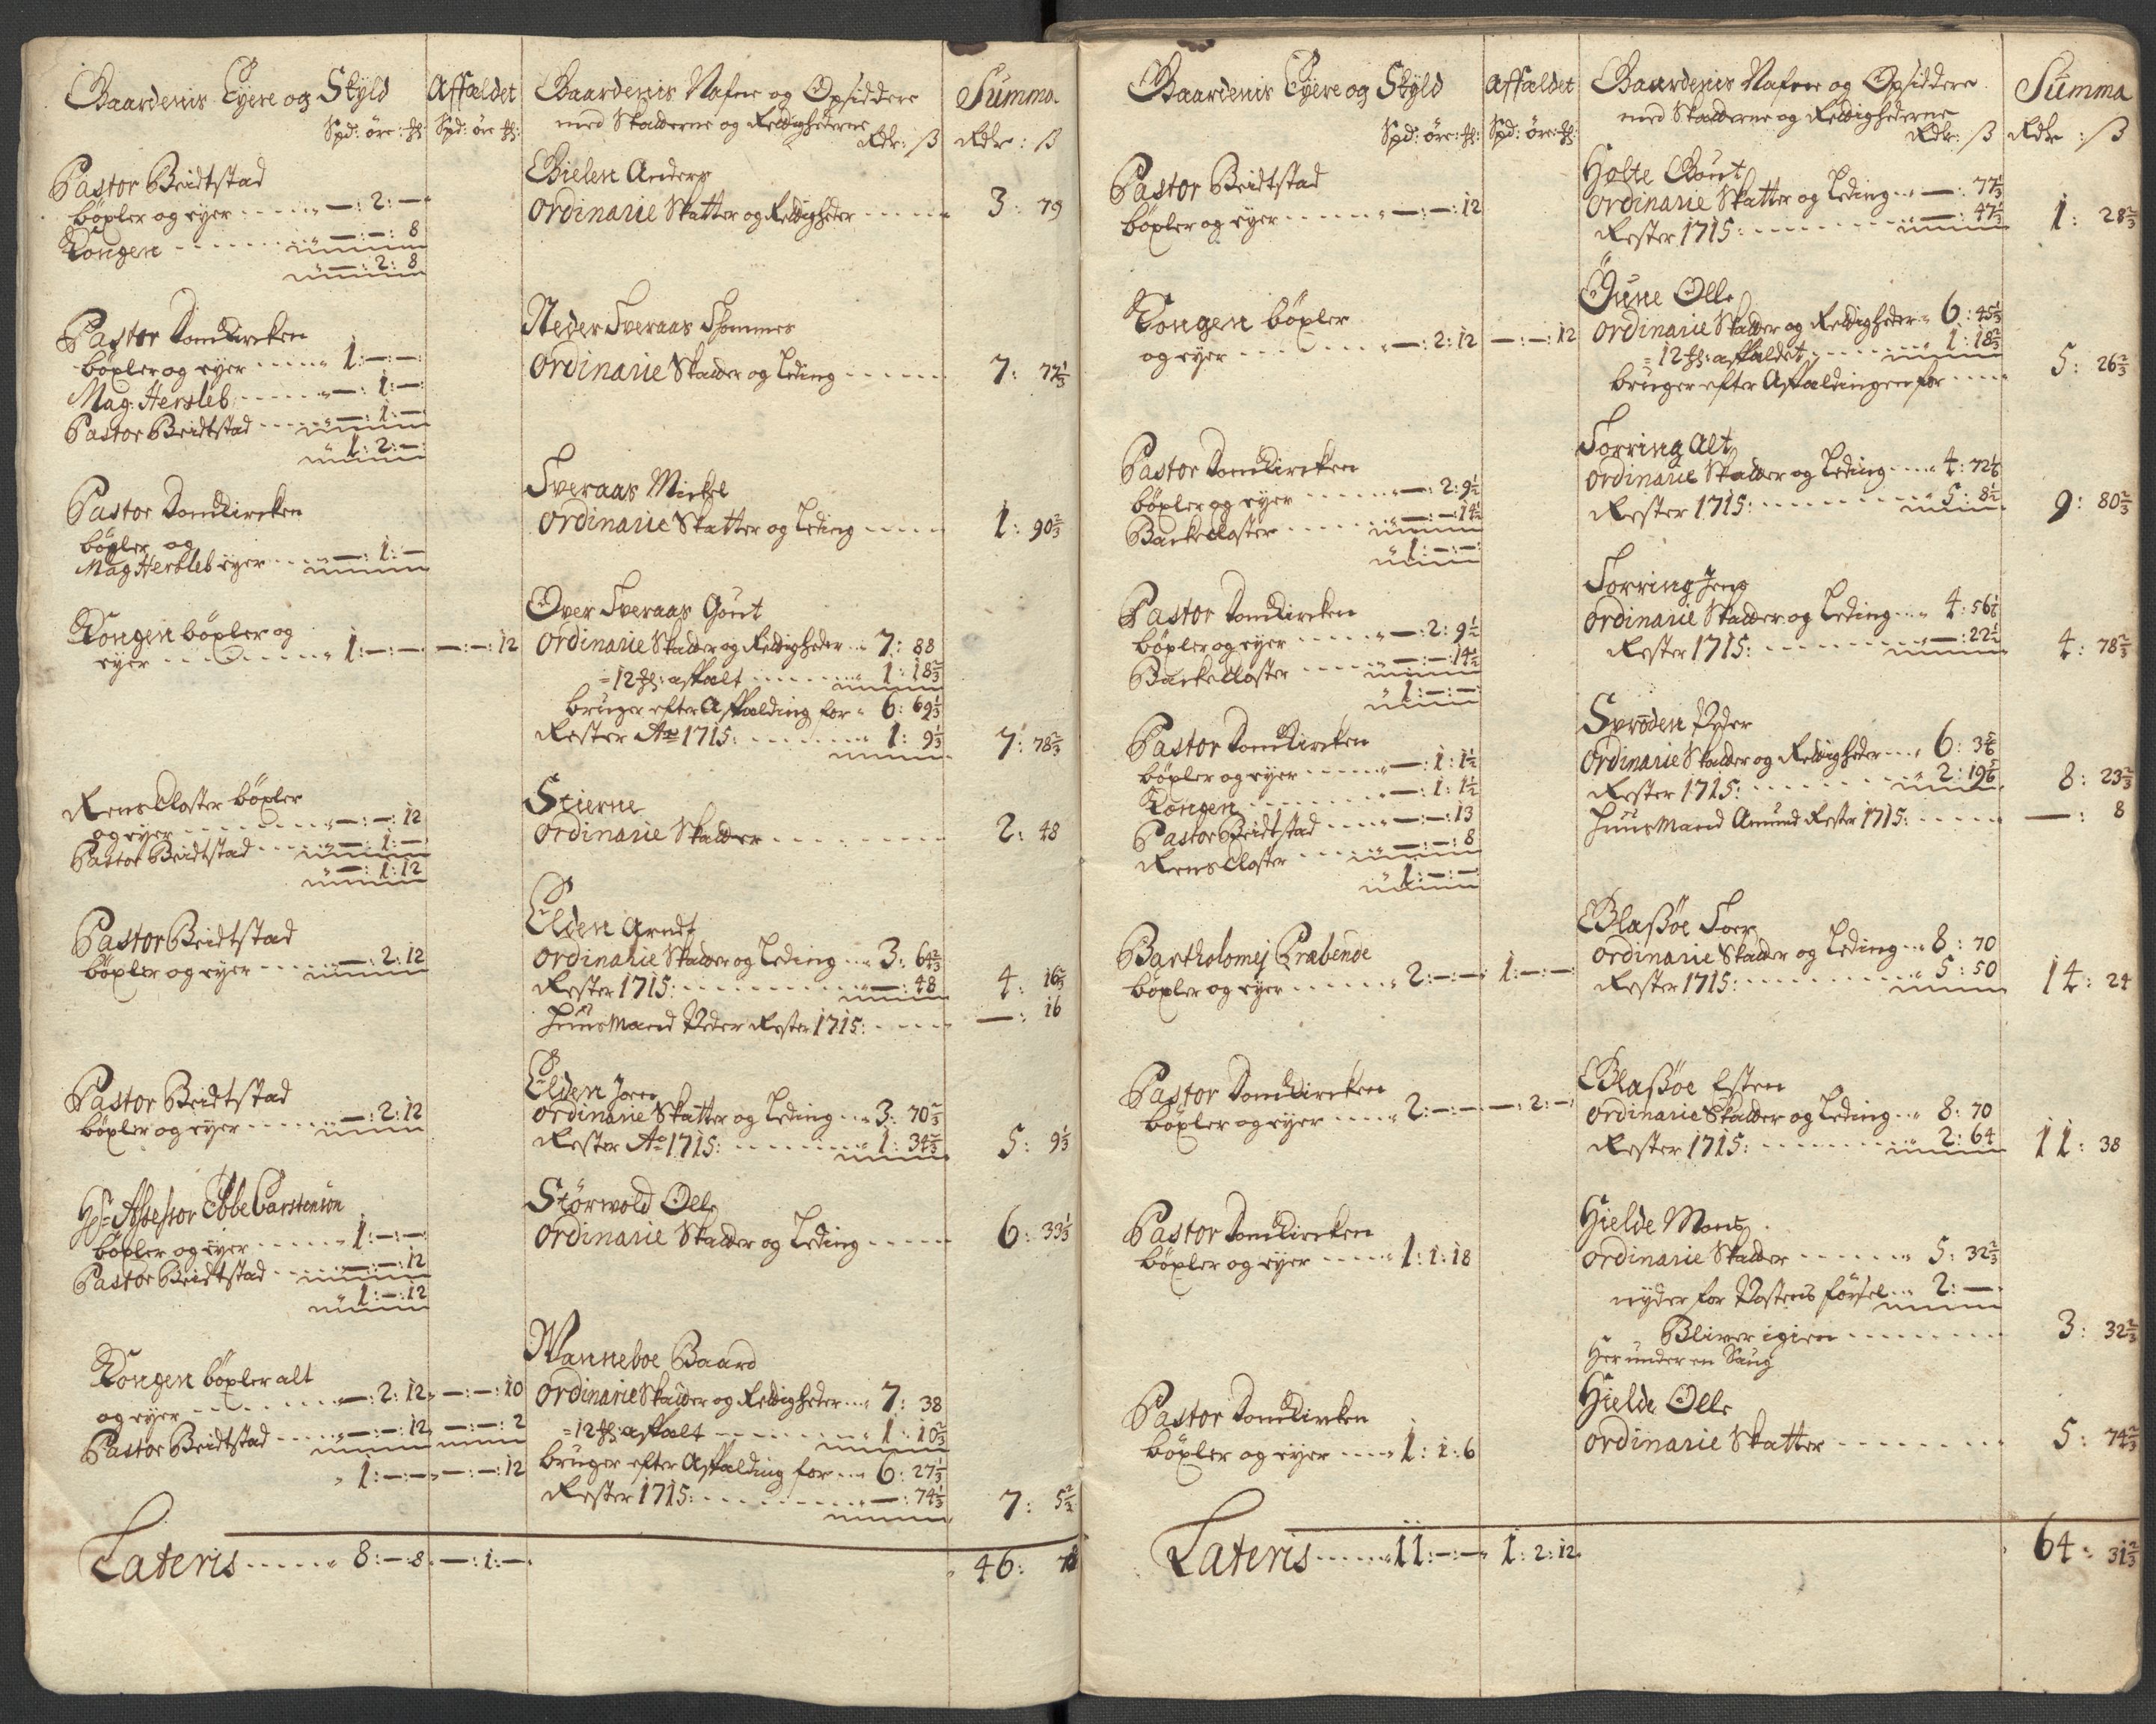 Gaardenis Eyere og Skyld
Spd: øre: ₶:
Affældet
Spd: øre ₶:
Gaardenis Nafne og Opsiddere
med Skatterne og Rettighederne
Rdr: ß
Summa.
Rdr: ß
Pastor Beidtstad
böxler og eyer — : 2 : —
Kongen — : — : 8
— : 2 : 8
Bielen Anders
Ordinarie Skatter og Rettigheder
3 : 79
Pastor Domkircken
böxler og eyer 1 : — : —
Mag: Hersleb — : 1 : —
Pastor Beidtstad — : 1 : —
1 : 2 : —
Neder Sveraas Thommes
Ordinarie Skatter og Leding
7 : 77 1/3
Pastor Domkircken
böxler og
Mag Hersleb eyer — : 1 : —
Sveraas Mickel
Ordinarie Skatter og Leding
1 : 90 2/3
Kongen böxler og
eyer 1 : — : — — : — : 12
Over Sveraas Gout
Ordinarie Skatter og Rettigheder 7 : 88
12 ₶: affalt 1 : 18 2/3
bruger efter Affælding for 6 : 69 1/3
Rester Ao 1715: 1 : 9 1/3
7 : 78 2/3
Rens Closter böxler
og eyer — : — : 12
Pastor Beidtstad — : 1 : —
— : 1 : 12
Stierne
Ordinarie Skatter
2 : 48
Pastor Beidtstad
böxler og eyer — : 2 : 12
Elden Arndt
Ordinarie Skatter og Leding 3 : 64 2/3
Rester 1715: — : 48
4 : 16 2/3
Huusmand Peder Rester 1715:
— : 16
Pastor Beidtstad
böxler og eyer — : 2 : 12
Elden Joen
Ordinarie Skatter og Leding 3 : 70 2/3
Rester Ao 1715: 1 : 34 2/3
5 : 9 1/3
Hr: Assessor Ebbe Carstensön
böxler og eyer 1 : — : —
Pastor Beidtstad — : — : 12
1 : — : 12
Störwold Olle
Ordinarie Skatter og Leding
6 : 33 1/3
Kongen böxler alt
og eyer — : 2 : 12 — : — : 10
Pastor Beidtstad — : — : 12 — : — : 2
1 : — : — — : — : 12
Wanneboe Baard
Ordinarie Skatter og Rettigheder 7 : 38
12 ₶: affalt 1 : 10 2/3
bruger efter Affælding for 6 : 27 1/3
Rester 1715: — : 74 1/3
7 : 5 2/3
Lateris 8 : — : 8 — : 1 : —
46 :
Gaardenis Eyere og Skyld
Spd: øre: ₶:
Affaldet
Spd: øre: ₶:
Gaardenis Nafne og Opsiddere
med Skatterne og Rettighederne
Rdr: ß
Summa
Rdr : ß
Pastor Beidtstad
böxler og eyer — : — : 12
Holte Gout
Ordinarie Skatter og Leding — : 77 1/3
Rester 1715: — : 47 1/3
1 : 28 2/3
Kongen böxler
og eyer — : 2 : 12 — : — : 12
Öune Olle
Ordinarie Skatter og Rettigheder 6 : 45 1/3
12 ₶: affaldet 1 : 18 2/3
bruger efter Affældingen for
5 : 26 2/3
Pastor Domkircken
böxler og eyer — : 2 : 9 1/2
Backe Closter — : — : 14 1/2
1 : — : —
Torring Alt
Ordinarie Skatter og Leding 4 : 72 1/6
Rester 1715: 5 : 8 1/2
9 : 80 2/3
Pastor Domkircken
böxler og eyer — : 2 : 9 1/2
Backe Closter — : — : 14 1/2
1 : — : —
Torring Jens
Ordinarie Skatter og Leding 4 : 56 1/6
Rester 1715: — : 22 1/2
4 : 78 2/3
Pastor Domkircken
böxler og eyer — : 1 : 1 1/2
Kongen — : 1 : 1 1/2
Pastor Beidtstad — : — : 13
Rens Closter — : — : 8
1 : — : —
Svröden Peder
Ordinarie Skatter og Rettigheder 6 : 3 5/6
Rester 1715: 2 : 19 5/6
8 : 23 2/3
Huusmand Amund Rester 1715:
— : 8
Bartholomej Præbende
böxler og eyer 2 : — : — 1 : — : —
Blasßöe Toer
Ordinarie Skatter og Leding 8 : 70
Rester 1715: 5 : 50
14 : 24
Pastor Domkircken
böxler og eyer 2 : — : — — : 2 : —
Blasßöe Esten
Ordinarie Skatter og Leding 8 : 70
Rester 1715: 2 : 64
11 : 38
Pastor Domkircken
böxler og eyer 1 : 1 : 18
Hielde Mons
Ordinarie Skatter 5 : 32 2/3
nyder for Postens förssel 2 : —
Bliver igien
3 : 32 2/3
Her under en Saug
Pastor Domkircken
böxler og eyer 1 : 1 : 6
Hielde Olle
Ordinarie Skatter
5 : 74 2/3
Lateris 11 : — : — 1 : 2 : 12
64 : 31 2/3